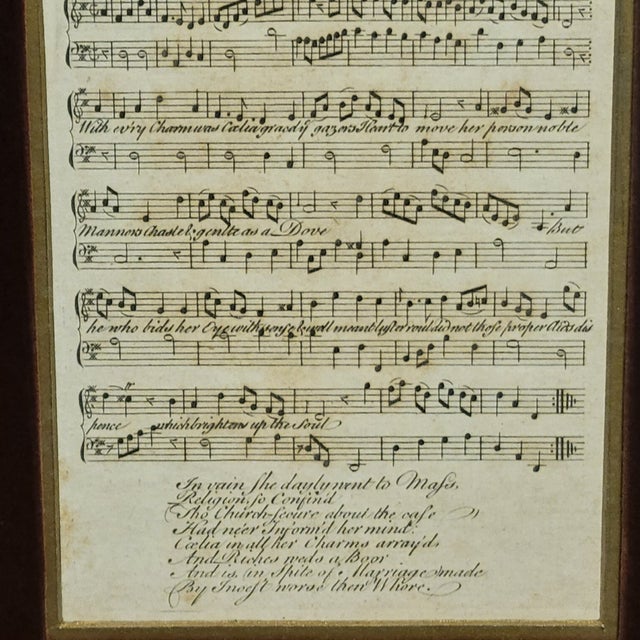 With ev'ry Charm was Cœlia grac'd y gazers Heart to move her person noble
Manners Chaste & gentle as a Dove But
he who bids her Eye with sense & well meant did not those proper Aids dis
pence which brightens up the Soul
In vain she dayly went to Mass,
Religion, so Confin'd
Tho Church-secure about the case
Had ne'er Inform'd her mind:
Cœlia in all her Charms array'd
And Riches weds a Boor
And is, (in Spite of Marriage) made
By Incest worse then Whore.